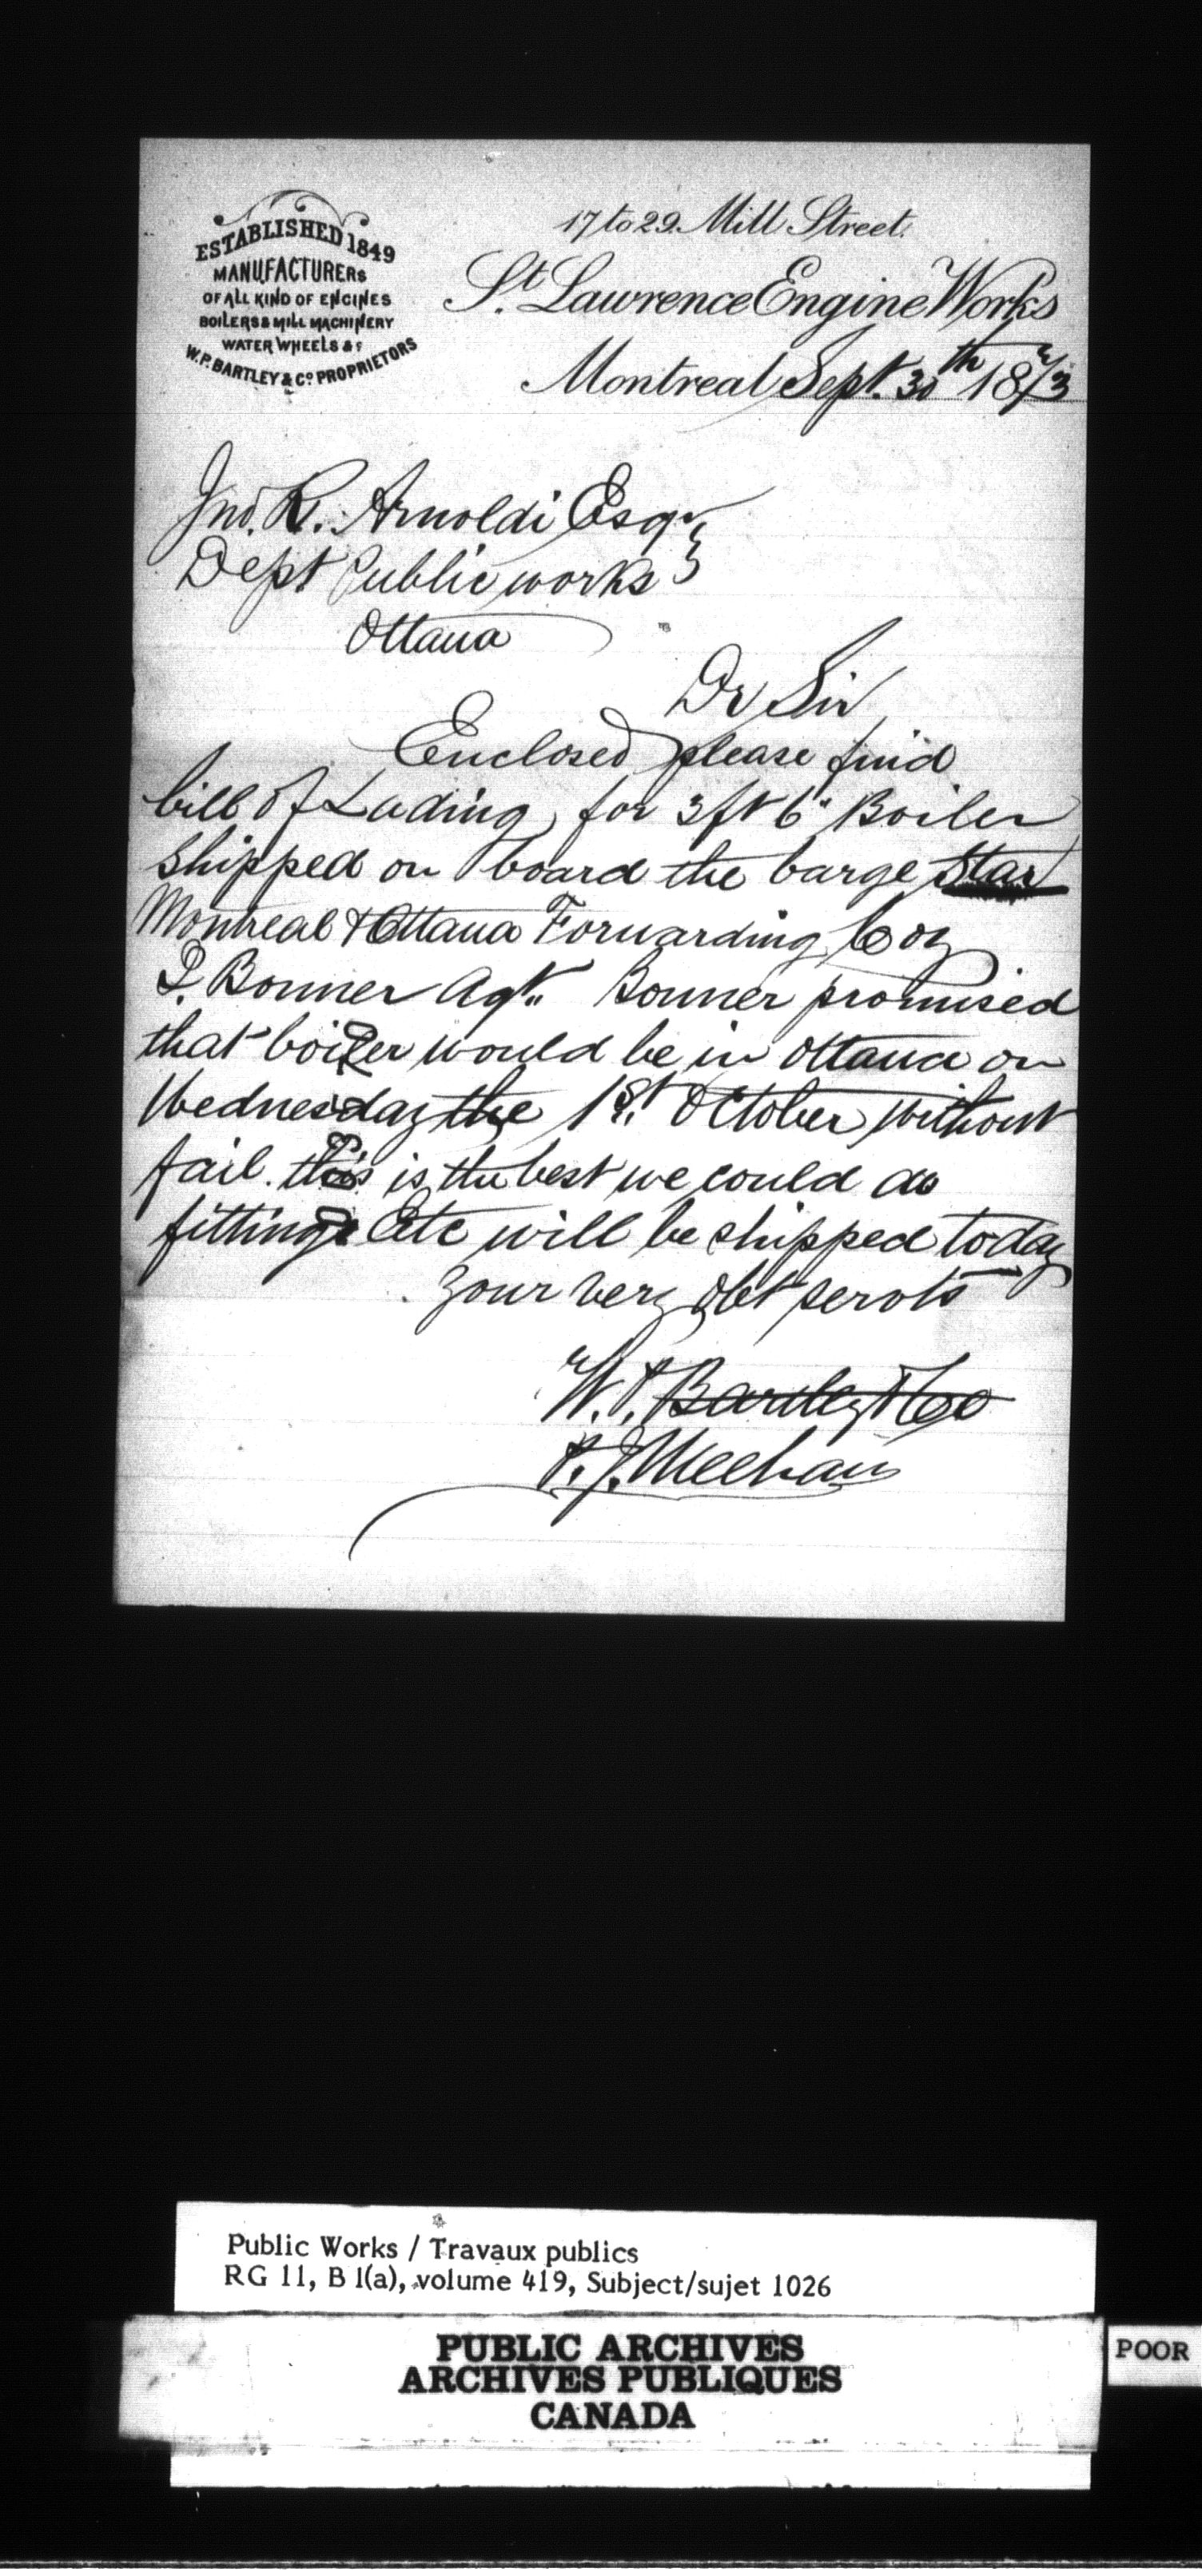 ESTABLISHED 1849
MANUFACTURERS
OF ALL KIND OF ENGINES
BOILERS & MILL MACHINERY
WATER WHEELS &c
W.P. BARTLEY & Co PROPRIETORS
17 to 29 Mill Street.
St. Lawrence Engine Works
Montreal Sept. 30th 1873
Jno. R. Arnoldi Esqr
Dept Public works
Ottawa
Dr Sir
Enclosed please find
bill of Lading for 3 ft 6" Boiler
shipped on board the barge Star
Montreal & Ottawa Forwarding Coy
Bonner Agt. Bonner promised
that boiler would be in Ottawa on
Wednesday the 1st October without
fail. this is the best we could do
fittings Etc will be shipped today
your very obt servts
W. P. Bartley & Co
P. J. Meehan
Public Works / Travaux publics
RG 11, B 1(a), volume 419, Subject/sujet 1026
PUBLIC ARCHIVES
ARCHIVES PUBLIQUES
CANADA
POOR